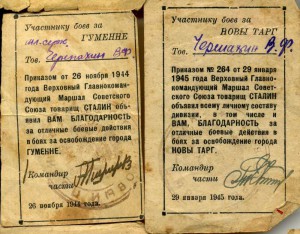 Участнику боев за
ГУМЕННЕ
Тов.
Приказом от 26 ноября 1944
года Верховный Главноко-
мандующий Маршал Советского
Союза товарищ СТАЛИН
объявил ВАМ БЛАГОДАРНОСТЬ
за отличные боевые действия
в боях за освобождение города
ГУМЕННЕ.
Командир
части
26 ноября 1944 г.
Участнику боев за
НОВЫ ТАРГ
Тов. В.Ф.
Приказом № 264 от 29 января
1945 года Верховный Главно-
командующий Маршал Советского
Союза товарищ СТАЛИН
объявил всему личному составу
дивизии, в том числе и
ВАМ, БЛАГОДАРНОСТЬ за
отличные боевые действия
в боях за освобождение города
НОВЫ ТАРГ.
Командир
части
29 января 1945 года.